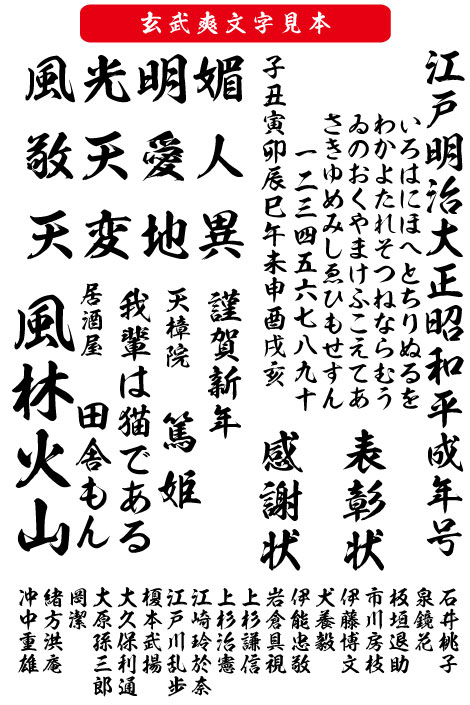 玄武爽文字見本
江戸明治大正昭和平成年号
いろはにほへとちりぬるを
わかよたれそつねならむう
ゐのおくやまけふこえてあ
さきゆめみしゑひもせすん
一二三四五六七八九十
子丑寅卯辰巳午未申酉戌亥
表彰状
感謝状
媚人異
明愛地
光天変
風敬天
謹賀新年
天樟院
篤姫
我輩は猫である
居酒屋
田舎もん
風林火山
石井桃子
泉鏡花
板垣退助
市川房枝
伊藤博文
犬養毅
伊能忠敬
岩倉具視
上杉謙信
上杉治憲
江崎玲於奈
江戸川乱歩
榎本武揚
大久保利通
大原孫三郎
岡潔
緒方洪庵
沖中重雄